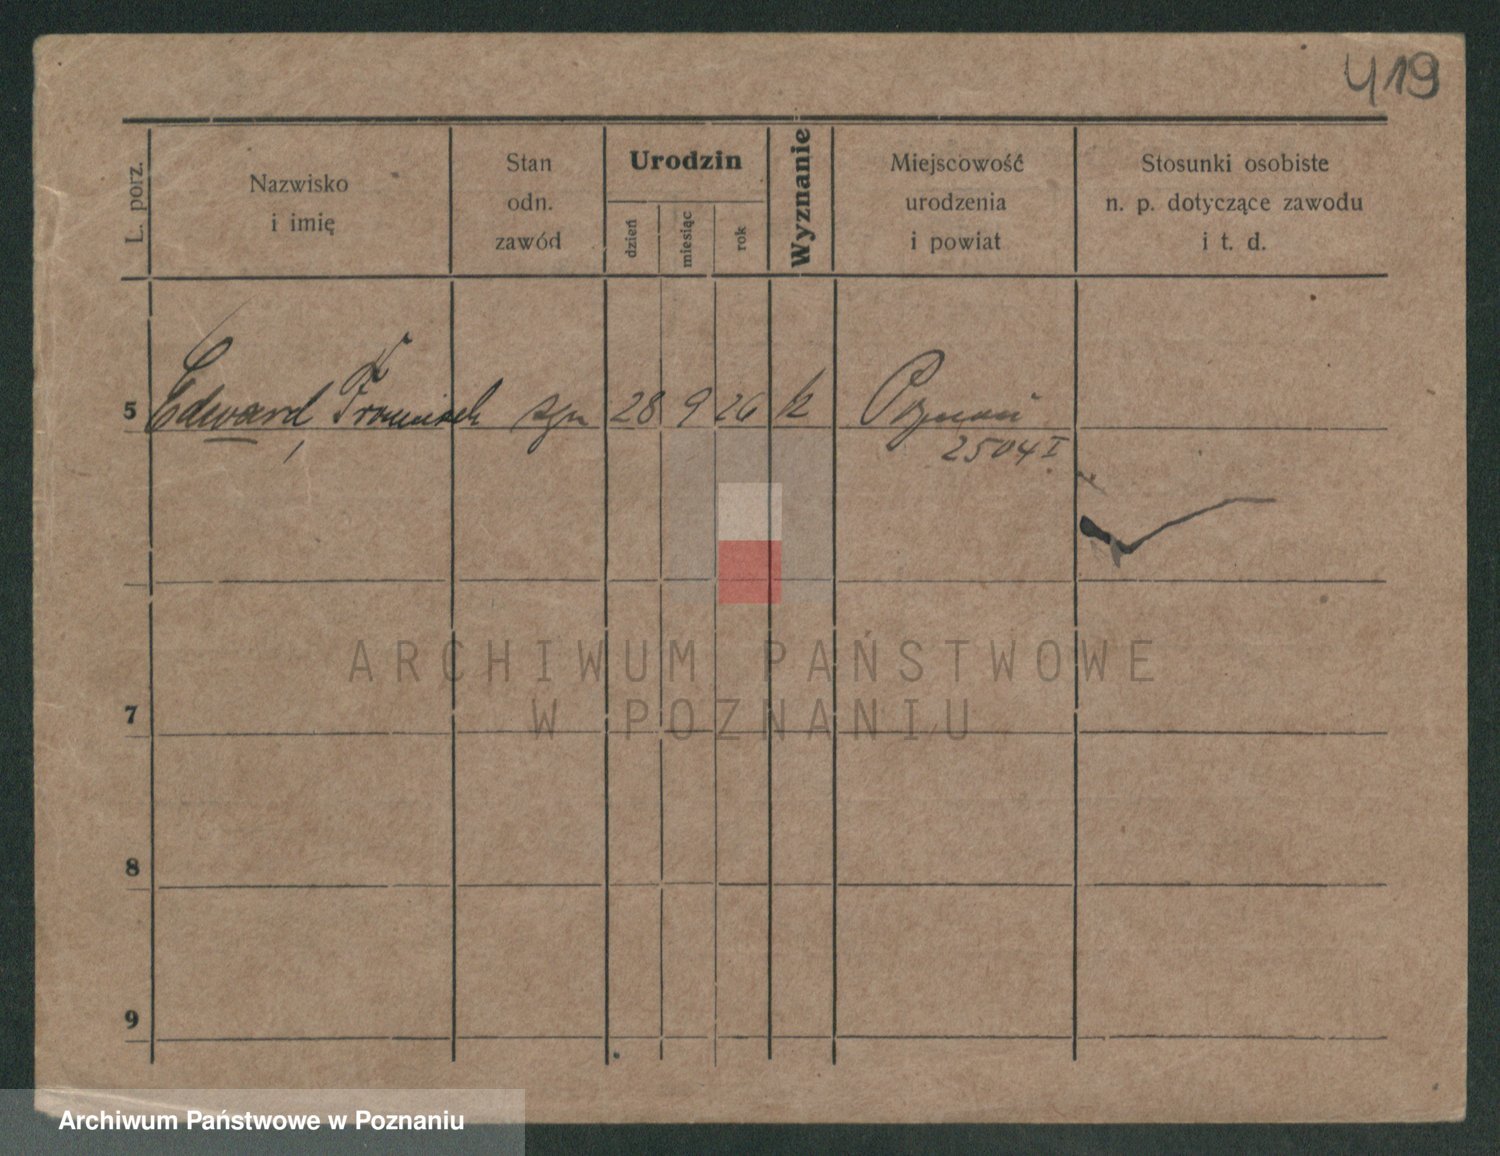 419
L. porz.
Nazwisko
i imię
Stan
odn.
zawód
Urodzin
dzień
miesiąc
rok
Wyznanie
Miejscowość
urodzenia
i powiat
Stosunki osobiste
n. p. dotyczące zawodu
i t. d.
5 Edward Franciszek syn 28 9 26 k Poznań
2504 I
ARCHIWUM PAŃSTWOWE
W POZNANIU
7
8
9
Archiwum Państwowe w Poznaniu